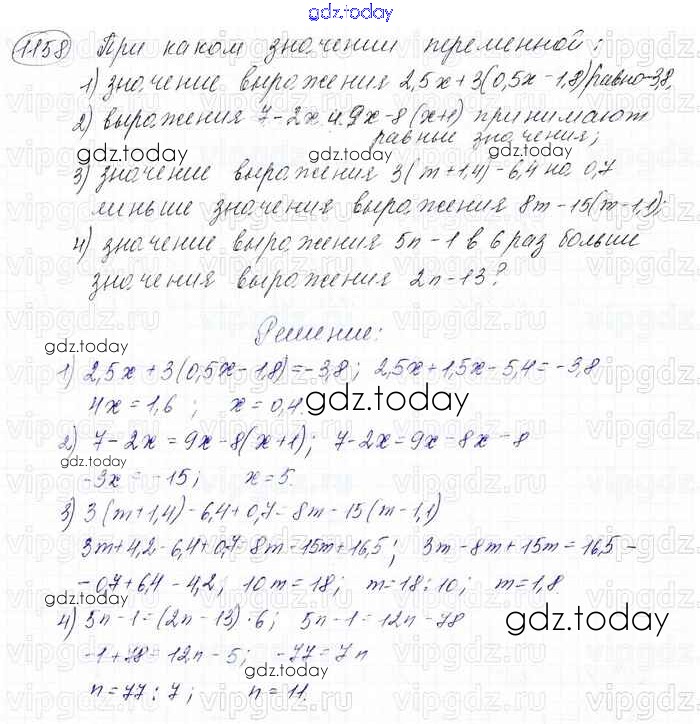 gdz.today
1158 При каком значении переменной:
1) значение выражения 2,5x+3(0,5x-1,8) равно -3,8,
2) выражения 7-2x и 9x-8(x+1) принимают
gdz.today равные значения; gdz.today
3) значение выражения 3(m+1,4)-6,4 на 0,7
меньше значения выражения 8m-15(m-1,1);
4) значение выражения 5n-1 в 6 раз больше
значения выражения 2n-13?
Решение:
gdz.today
1) 2,5x+3(0,5x-1,8)=-3,8; 2,5x+1,5x-5,4=-3,8
4x=1,6; x=0,4. gdz.today
2) 7-2x=9x-8(x+1); 7-2x=9x-8x-8
gdz.today
-3x=-15; x=5.
3) 3(m+1,4)-6,4+0,7=8m-15(m-1,1)
3m+4,2-6,4+0,7=8m-15m+16,5; 3m-8m+15m=16,5-
-0,7+6,4-4,2; 10m=18; m=18:10; m=1,8.
gdz.today gdz.today
4) 5n-1=(2n-13)·6; 5n-1=12n-78
-1+78=12n-5; -77=7n
gdz.today
n=77:7; n=11.